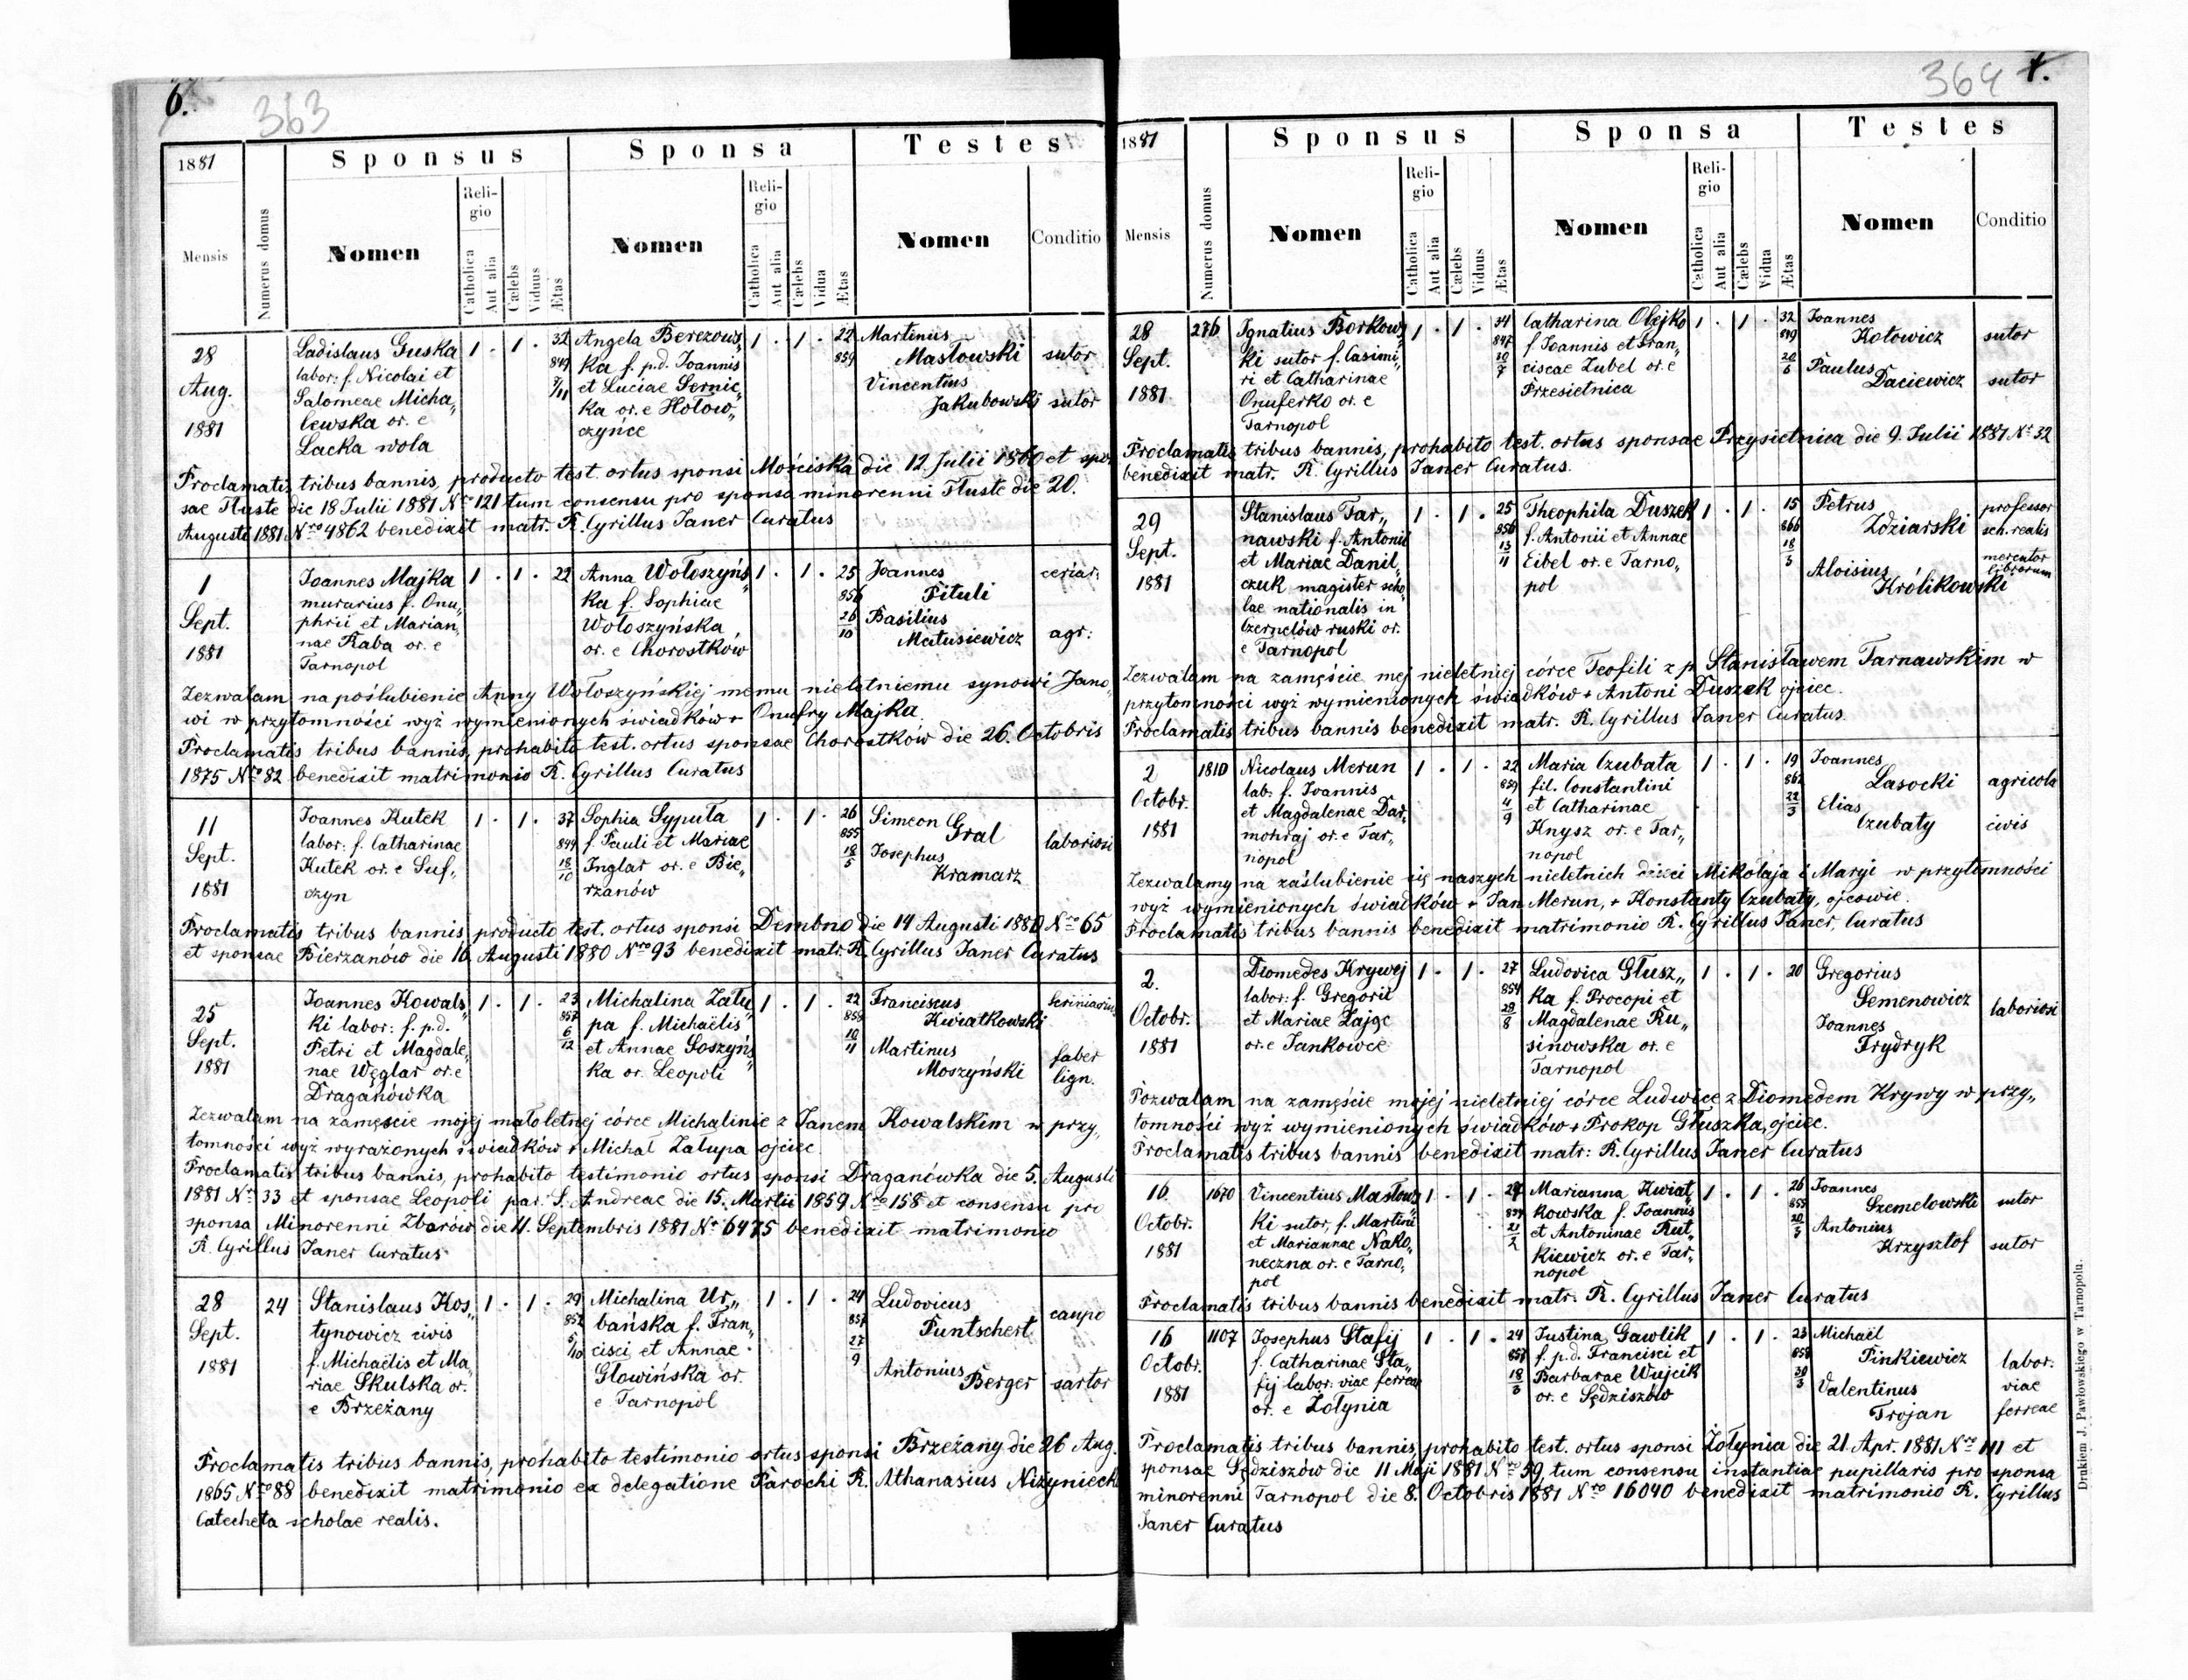 6.
363
1881
Sponsus
Sponsa
Testes
Mensis
Numerus domus
Nomen
Religio
Catholica
Aut alia
Cælebs
Viduus
Ætas
Nomen
Religio
Catholica
Aut alia
Cælebs
Vidua
Ætas
Nomen
Conditio
28
Aug.
1881
Ladislaus Guska
labor: f. Nicolai et
Salomeae Micha„
lewska or. e
Lacka wola
1 . 1 . 32
849
7/11
Angela Berezows„
ka f. p.d. Joannis
et Luciae Sernic„
ka or. e Hołow„
czyńce
1 . 1 . 22
859
Martinus
Masłowski sutor
Vincentius
Jakubowski sutor
Proclamatis tribus bannis, producto test. ortus sponsi Mościska die 12. Julii 1860 et spon
sae Tłuste die 18 Julii 1881 Nº 121 tum consensu pro sponsa minorenni Tłuste die 20.
Augusti 1881 Nro 4862 benedixit matr. R. Cyrillus Janer Curatus
1
Sept.
1881
Joannes Majka
murarius f. Onu„
phrii et Marian„
nae Raba or. e
Tarnopol
1 . 1 . 22
Anna Wołoszyńs„
ka f. Sophiae
Wołoszyńska
or. e Chorostków
1 . 1 . 25
856
26
10
Joannes
Fituli
ceriar:
Basilius
Matusiewicz agr:
Zezwalam na poślubienie Anny Wołoszyńskiej memu nieletniemu synowi Jano„
wi w przytomności wyż wymienionych świadków + Onufry Majka
Proclamatis tribus bannis, prohabito test. ortus sponsae Chorostków die 26. Octobris
1875 Nro 82 benedixit matrimonio R. Cyrillus Curatus
11
Sept.
1881
Joannes Kutek
labor: f. Catharinae
Kutek or. e Suf„
czyn
1 . 1 . 37
844
18
10
Sophia Syputa
f. Pauli et Mariae
Inglar or. e Bie„
rzanów
1 . 1 . 26
855
18
5
Simeon
Gral
Josephus
Kramarz
laboriosi
Proclamatis tribus bannis producto test. ortus sponsi Dembno die 14 Augusti 1880 Nro 65
et sponsae Bierzanow die 16 Augusti 1880 Nro 93 benedixit matr. R. Cyrillus Janer Curatus
25
Sept.
1881
Joannes Kowals„
ki labor: f. p.d.
Petri et Magdale„
nae Węglar or. e
Draganówka
1 . 1 . 23
857
6
12
Michalina Zału„
pa f. Michaëlis
et Annae Soszyńs„
ka or. Leopoli
1 . 1 . 22
858
10
11
Franciscus
Kwiatkowski
scriniarius
Martinus
Moszyński
faber
lign.
Zezwalam na zamęście mojej małoletnej córce Michalinie z Janem Kowalskim w przy„
tomności wyż wyrażonych świadków + Michał Zalupa ojciec
Proclamatis tribus bannis, prohabito testimonio ortus sponsi Draganówka die 5. Augusti
1881 Nro 33 et sponsae Leopoli par. S. Andreae die 15. Martii 1859 Nro 158 et consensu pro
sponsa Minorenni Zborów die 11. Septembris 1881 Nr 6475 benedixit matrimonio
R. Cyrillus Janer Curatus
28
Sept.
1881
24
Stanislaus Kos„
tynowicz civis
f. Michaëlis et Ma„
riae Skulska or.
e Brzeżany
1 . 1 . 29
852
5/10
Michalina Ur„
bańska f. Fran„
cisci et Annae
Głowińska or.
e Tarnopol
1 . 1 . 24
857
27
9
Ludovicus
Puntschert
caupo
Antonius
Berger sartor
Proclamatis tribus bannis, prohabito testimonio ortus sponsi Brzeżany die 26 Aug.
1865 Nro 88 benedixit matrimonio ex delegatione Parochi R. Athanasius Niżyniecki
Catecheta scholae realis.
364
1881
Sponsus
Sponsa
Testes
Mensis
Numerus domus
Nomen
Religio
Catholica
Aut alia
Cælebs
Viduus
Ætas
Nomen
Religio
Catholica
Aut alia
Cælebs
Vidua
Ætas
Nomen
Conditio
28
Sept.
1881
276
Ignatius Borkows„
ki sutor f. Casimi„
ri et Catharinae
Onuferko or. e
Tarnopol
1 . 1 . 34
847
30
7
Catharina Olejko
f. Joannis et Fran„
ciscae Zubel or. e
Przesietnica
1 . 1 . 32
849
20
6
Joannes
Kotowicz sutor
Paulus
Daciewicz sutor
Proclamatis tribus bannis, prohabito test. ortus sponsae Przysietnica die 9. Julii 1881 Nr 32
benedixit matr. R. Cyrillus Janer Curatus.
29
Sept.
1881
Stanislaus Tar„
nawski f. Antonii
et Mariae Danil„
czuk magister scho„
lae nationalis in
Czernelów ruski or.
e Tarnopol
1 . 1 . 25
856
13
11
Theophila Duszek
f. Antonii et Annae
Eibel or. e Tarno„
pol
1 . 1 . 15
866
18
3
Petrus
Zdziarski
professor
sch. realis
Aloisius
Królikowski
mercator
librorum
Zezwalam na zamęście mej nieletniej córce Teofili z p. Stanisławem Tarnawskim w
przytomności wyż wymienionych świadków + Antoni Duszek ojciec.
Proclamatis tribus bannis benedixit matr. R. Cyrillus Janer Curatus.
2
Octobr.
1881
1810
Nicolaus Merun
lab. f. Joannis
et Magdalenae Dar„
mohraj or. e Tar„
nopol
1 . 1 . 22
859
4
9
Maria Czubata
fil. Constantini
et Catharinae
Knysz or. e Tar„
nopol
1 . 1 . 19
862
22
3
Joannes
Lasocki agricola
Elias
Czubaty civis
Zezwalamy na zaślubienie się naszych nieletnich dzieci Mikołaja i Maryi w przytomności
wyż wymienionych świadków + Jan Merun, + Konstanty Czubaty, ojcowie.
Proclamatis tribus bannis benedixit matrimonio R. Cyrillus Janer, Curatus
2.
Octobr.
1881
Diomedes Krywej
labor: f. Gregorii
et Mariae Zając
or. e Jankowce
1 . 1 . 27
854
28
8
Ludovica Głusz„
ka f. Procopi et
Magdalenae Ru„
sinowska or. e
Tarnopol
1 . 1 . 20
Gregorius
Semenowicz
Joannes
Frydryk
laboriosi
Pozwalam na zamęście mojej nieletniej córce Ludwice z Diomedem Krywy w przy„
tomności wyż wymienionych świadków + Prokop Głuszka, ojciec.
Proclamatis tribus bannis benedixit matr: R. Cyrillus Janer Curatus
16.
Octobr.
1881
1670
Vincentius Masłows„
ki sutor, f. Martini
et Mariannae Nako„
neczna or. e Tarno„
pol
1 . 1 .
21
2
Marianna Kwiat„
kowska f. Joannis
et Antoninae Rut„
kiewicz or. e Tar„
nopol
1 . 1 . 26
855
20
3
Joannes
Szemelowski sutor
Antonius
Krzysztof sutor
Proclamatis tribus bannis benedixit matr. R. Cyrillus Janer Curatus
16
Octobr.
1881
1107
Josephus Stafij
f. Catharinae Sta„
fij labor: viae ferreae
or. e Żołynia
1 . 1 . 24
857
18
3
Justina Gawlik
f. p.d. Francisci et
Barbarae Wujcik
or. e Sędziszów
1 . 1 . 23
858
30
3
Michaël
Pinkiewicz
Valentinus
Trojan
labor:
viae
ferreae
Proclamatis tribus bannis, prohabito test. ortus sponsi Żołynia die 21 Apr. 1881 Nro 111 et
sponsae Sędziszów die 11 Maji 1881 Nro 59, tum consensu instantiae pupillaris pro sponsa
minorenni Tarnopol die 8. Octobris 1881 Nro 16040 benedixit matrimonio R. Cyrillus
Janer Curatus
Drukiem J. Pawłowskiego w Tarnopolu.